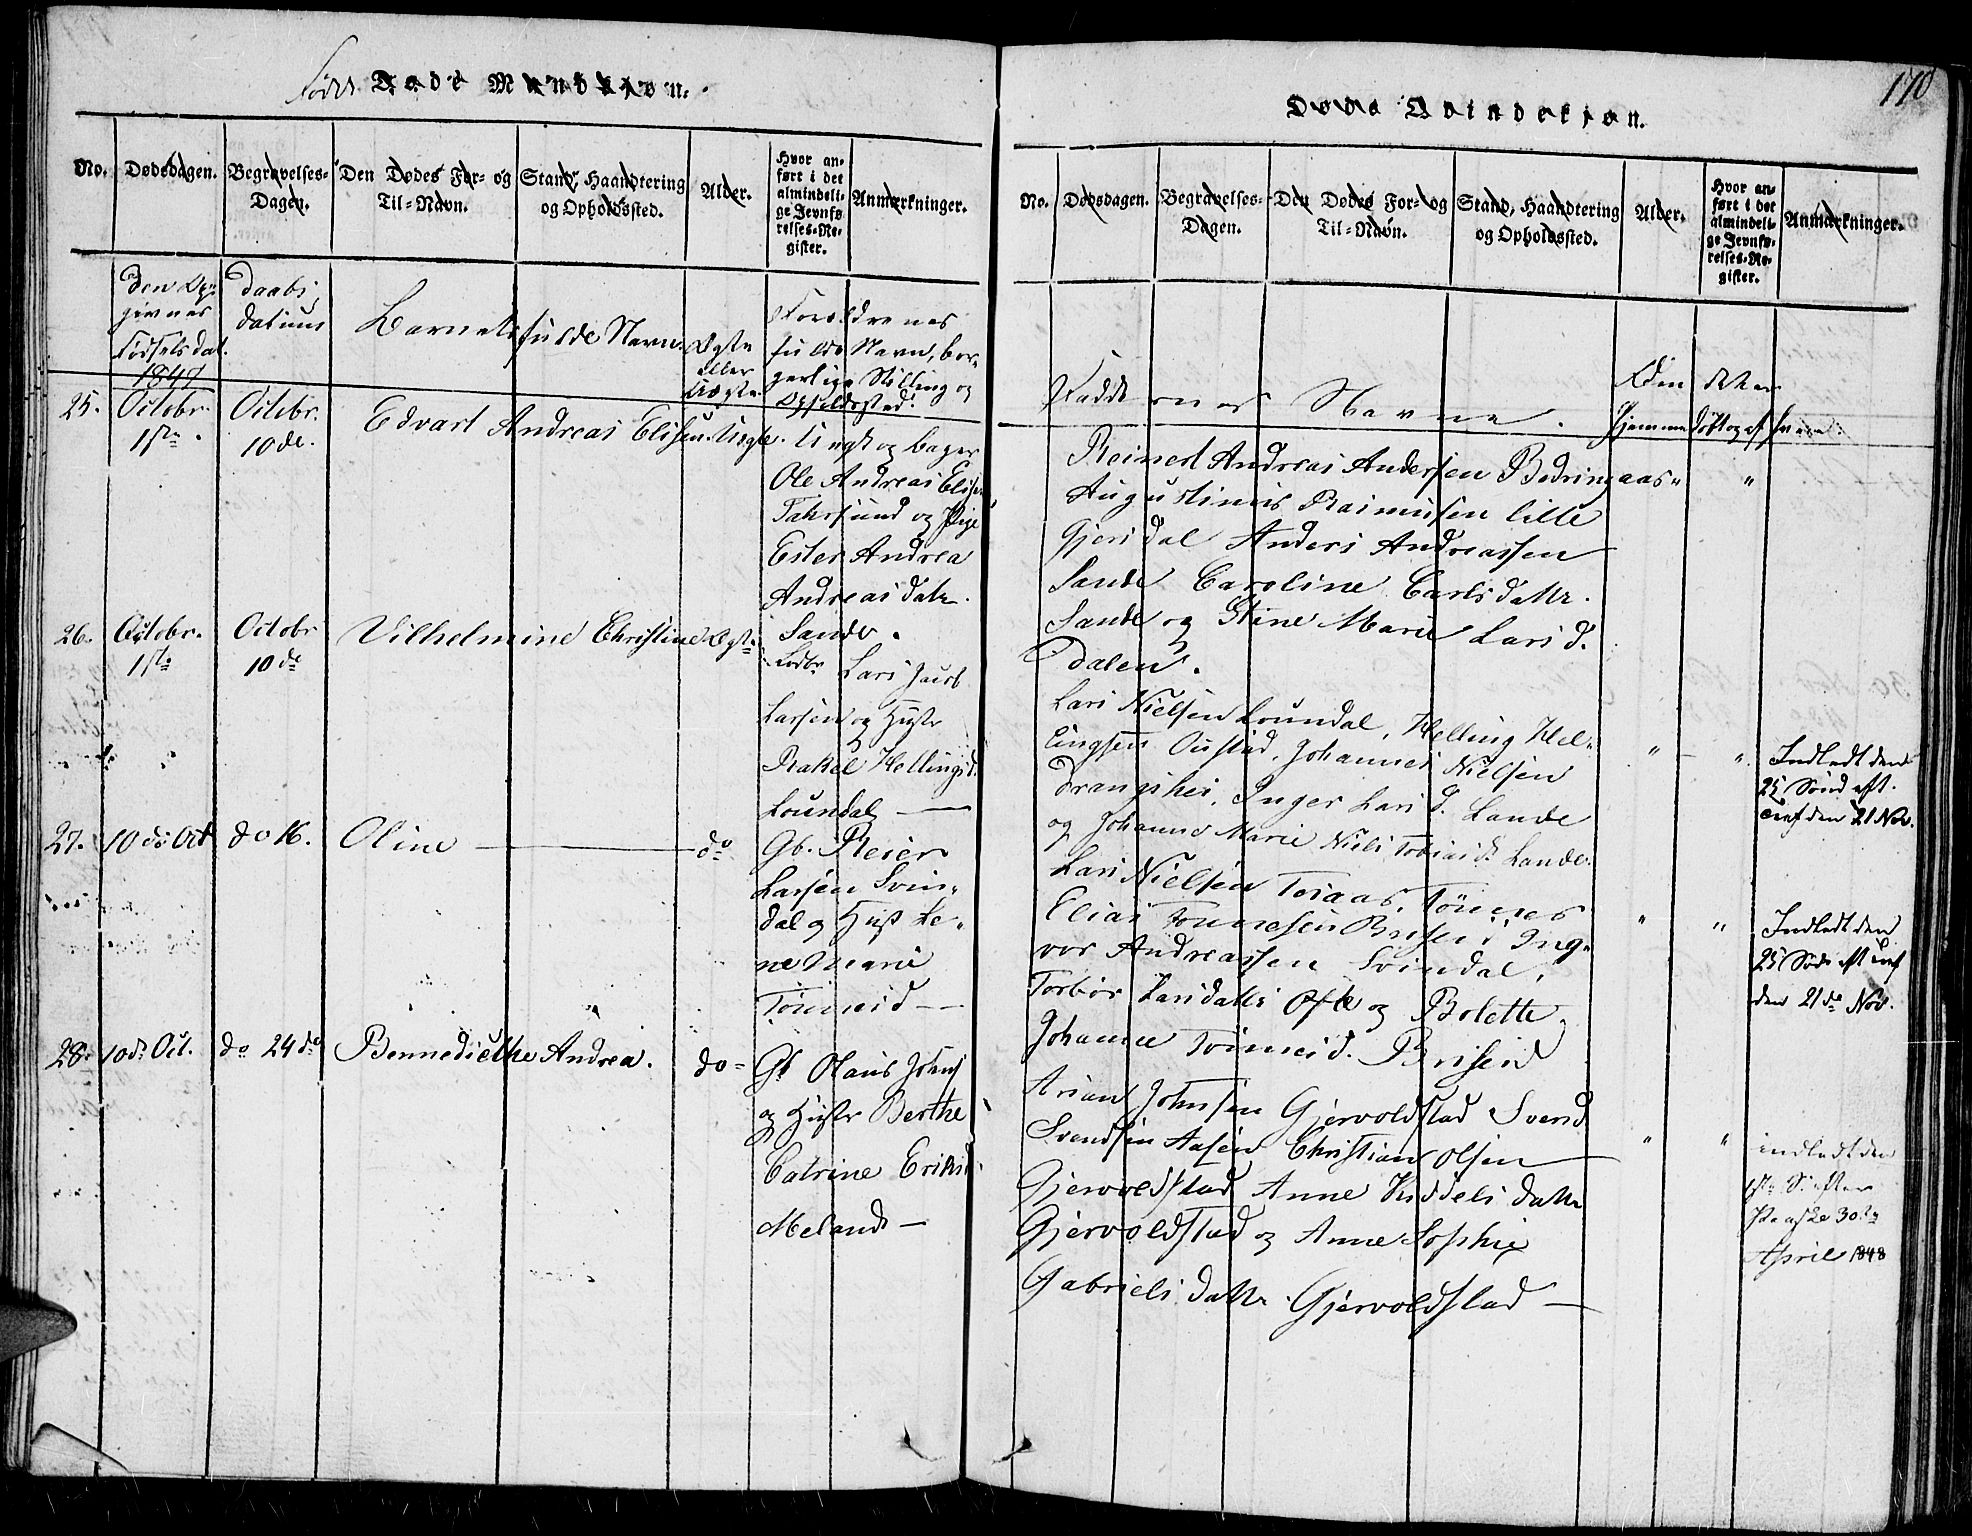 170
Døde Mandkjøn.
No.
Dødsdagen.
Begravelses-
Dagen.
Den Dødes For- og
Til-Navn.
Stand, Haandtering
og Opholdssted.
Alder.
Hvor an-
ført i det
almindeli-
ge Jevnfø-
relses-Re-
gister.
Anmærkninger.
fødsels dat.
1847
Daabs
datum
Barnets fulde Navn.
Ægte
eller
Uægte
Forældrenes
fulde Navn, bor-
gerlige Stilling og
Opholdssted.
25.
Octobr.
1ste.
Octobr.
10de.
Edvart Andreas Elisen. Uægte.
Ungk og bager
Ole Andreas Elisen
Fahrsund og Pige
Ester Andrea
Andreasdatr.
Sande.
26.
Octobr.
1ste
Octobr
10de
Vilhelmine Christine
Ægte
Lars Jacob
Larsen og Hustr
Rakel Hellingsd.
Loundal —
27.
10de Oct
do 16.
Oline —
do
Gb. Reier
Larsen Svin-
dal og Hust Le-
ne Marie
Tønnesd —
28.
10de Oct.
do 24de
Bennedicthe Andrea.
do
Gb Olaus Johns
og Hustr Berthe
Catrine Eriksd.
Meland —
Døde Qvindekjøn.
No.
Dødsdagen.
Begravelses-
Dagen.
Den Dødes For- og
Til-Navn.
Stand, Haandtering
og Opholdssted.
Alder.
Hvor an-
ført i det
almindeli-
ge Jevnfø-
relses-Re-
gister.
Anmærkninger.
Faddernes Navne.
Om det er
hjemmedøbt og af hvem
Reinert Andreas Andersen Bedringaas
Augustinus Rasmusen lille
Gjersdal Anders Andreassen
Sande Caroline Carlsdattr.
Sande og Stine Marie Lars d.
Dalen.
Lars Nielsen Loundal, Helling Hel-
lingsen Oustad, Johannes Nielsen
Drangshei, Inger Lars d. Lande
og Johanne Marie Niels Tobias d. Lande
Indledt den
25 Sønd eft.
Tref den 21 Nov.
Lars Nielsen Tosaas, Tønnes
Elias Tønnesen Brisen, Ing-
vor Andreassen Svindal,
Torbør Larsdattr Ofte og Bolette
Johanne Tønnesd. Briseid
Indledt den
25 Sønd eft Tref
den 21de Nov.
Arian Johnsen Gjervoldstad Svend
Svendsen Aasen Christian Olsen
Gjervoldstad Anne Kiddelsdattr
Gjervoldstad og Anne Sophie
Gabrielsdattr Gjervoldstad —
indledt den
1ste S. efter
Paaske 30te
April 1848